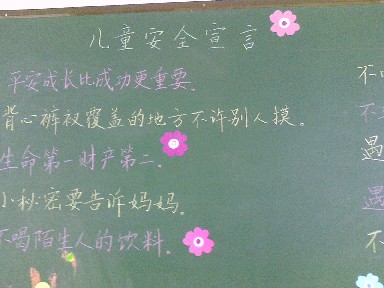 儿童安全宣言
平安成长比成功更重要。
背心裤衩覆盖的地方不许别人摸。
生命第一财产第二。
小秘密要告诉妈妈。
不喝陌生人的饮料。
不
不
遇
遇
不